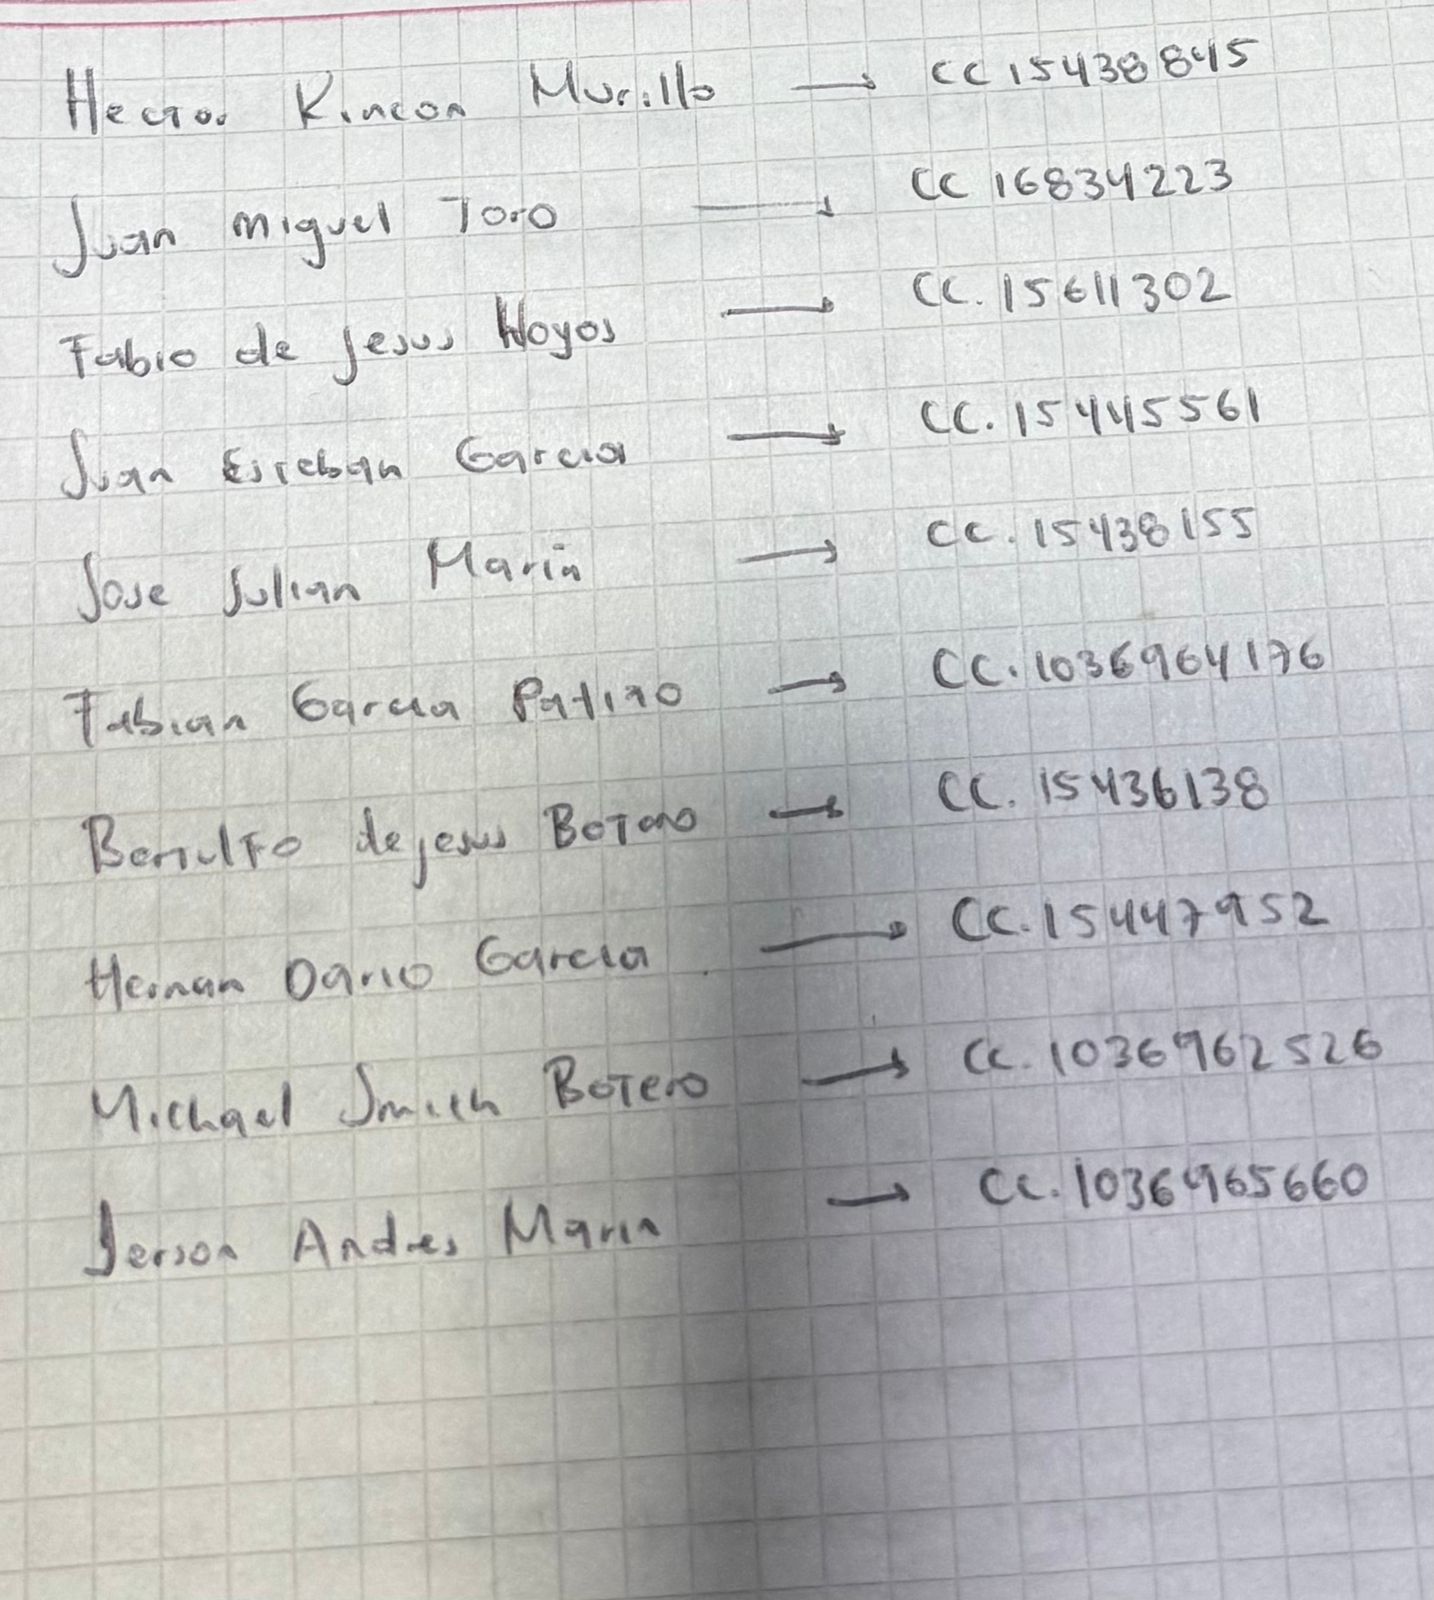 Hector Rincon Murillo → CC 15438845
Juan Miguel Toro → CC 16834223
Fabio de Jesus Hoyos → CC. 15611302
Juan Esteban Garcia → CC. 15445561
Jose Julian Marin → CC. 15438155
Fabian Garcia Patiño → CC. 1036964176
de jesus Botero → CC. 15436138
Hernan Dario Garcia → CC. 15447952
Michael Smith Botero → CC. 1036962526
Jerson Andres Marin → CC. 1036965660